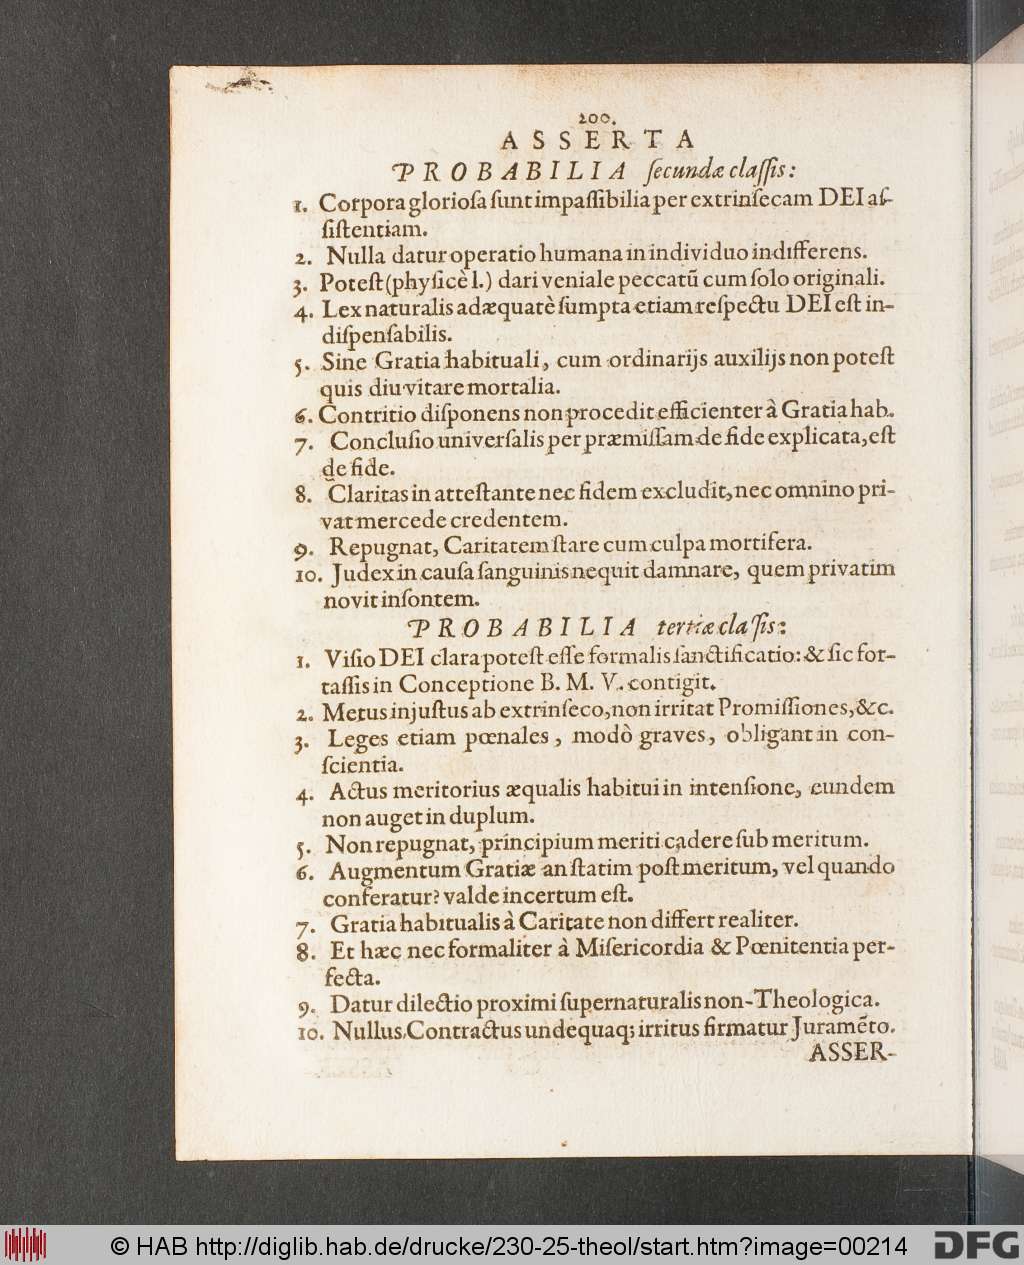 200.
ASSERTA
PROBABILIA ſecundæ claſſis:
1. Corpora glorioſa ſunt impaſſibilia per extrinſecam DEI aſ-
ſiſtentiam.
2. Nulla datur operatio humana in individuo indifferens.
3. Poteſt (phyſicè l.) dari veniale peccatũ cum ſolo originali.
4. Lex naturalis adæquatè ſumpta etiam reſpectu DEI eſt in-
diſpenſabilis.
5. Sine Gratia habituali, cum ordinarijs auxilijs non poteſt
quis diu vitare mortalia.
6. Contritio diſponens non procedit efficienter à Gratia hab.
7. Concluſio univerſalis per præmiſſam de fide explicata, eſt
de fide.
8. Claritas in atteſtante nec fidem excludit, nec omnino pri-
vat mercede credentem.
9. Repugnat, Caritatem ſtare cum culpa mortifera.
10. Judex in cauſa ſanguinis nequit damnare, quem privatim
novit inſontem.
PROBABILIA tertiæ claſſis:
1. Viſio DEI clara poteſt eſſe formalis ſanctificatio: & ſic for-
taſſis in Conceptione B. M. V. contigit.
2. Metus injuſtus ab extrinſeco, non irritat Promiſſiones, &c.
3. Leges etiam pœnales, modò graves, obligant in con-
ſcientia.
4. Actus meritorius æqualis habitui in intenſione, eundem
non auget in duplum.
5. Non repugnat, principium meriti cadere ſub meritum.
6. Augmentum Gratiæ an ſtatim poſt meritum, vel quando
conferatur? valde incertum eſt.
7. Gratia habitualis à Caritate non differt realiter.
8. Et hæc nec formaliter à Miſericordia & Pœnitentia per-
fecta.
9. Datur dilectio proximi ſupernaturalis non-Theologica.
10. Nullus Contractus undequaq; irritus firmatur Juramẽto.
ASSER-
© HAB http://diglib.hab.de/drucke/230-25-theol/start.htm?image=00214
DFG